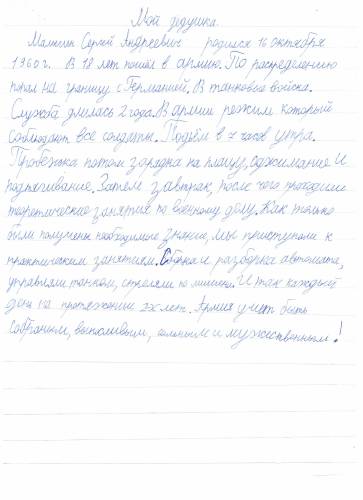 Мой дедушка.
Малыгин Сергей Андреевич родился 16 октября
1960г. В 18 лет пошёл в армию. По распределению
попал на границу с Германией. В танковые войска.
Служба длилась 2 года. В армии режим который
соблюдают все солдаты. Подъём в 7 часов утра.
Пробежка потом зарядка на плацу, отжимание и
подтягивание. Затем завтрак, после чего проходили
теоретические занятия по военному делу. Как только
были получены необходимые знания, мы приступали к
практическим занятиям. Сборка и разборка автомата,
управляли танком, стреляли по мишени. И так каждый
день на протяжении 2х лет. Армия учит быть
собранным, выносливым, сильным и мужественным!